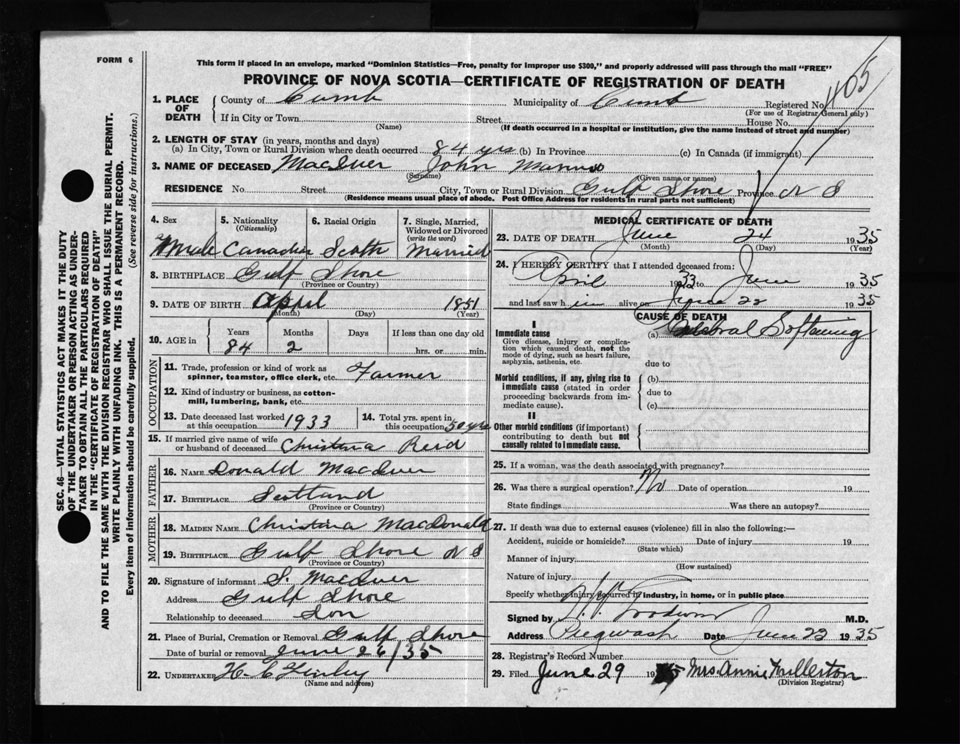 FORM 6
This form if placed in an envelope, marked "Dominion Statistics—Free, penalty for improper use $300," and properly addressed will pass through the mail "FREE"
PROVINCE OF NOVA SCOTIA—CERTIFICATE OF REGISTRATION OF DEATH
1. PLACE OF DEATH County of Cumb Municipality of Cumb Registered No. 405
(For use of Registrar General only)
If in City or Town (Name) Street House No.
(If death occurred in a hospital or institution, give the name instead of street and number)
2. LENGTH OF STAY (in years, months and days)
(a) In City, Town or Rural Division where death occurred 84 yrs (b) In Province (c) In Canada (if immigrant)
3. NAME OF DECEASED MacIver John
(Surname) (Given name or names)
RESIDENCE No. Street City, Town or Rural Division Gulf Shore Province N S
(Residence means usual place of abode. Post Office Address for residents in rural parts not sufficient)
4. Sex 5. Nationality (Citizenship) 6. Racial Origin 7. Single, Married, Widowed or Divorced (write the word)
Male Canadian Scotch Married
8. BIRTHPLACE Gulf Shore
(Province or Country)
9. DATE OF BIRTH April 1851
(Month) (Day) (Year)
10. AGE in Years Months Days If less than one day old
84 2 hrs. or min.
OCCUPATION
11. Trade, profession or kind of work as spinner, teamster, office clerk, etc. Farmer
12. Kind of industry or business, as cotton-mill, lumbering, bank, etc.
13. Date deceased last worked at this occupation 1933 14. Total yrs. spent in this occupation 50 yrs
15. If married give name of wife or husband of deceased Christina Reid
FATHER
16. NAME Donald MacIver
17. BIRTHPLACE Scotland
(Province or Country)
MOTHER
18. MAIDEN NAME Christina MacDonald
19. BIRTHPLACE Gulf Shore N S
(Province or Country)
20. Signature of informant S. MacIver
Address Gulf Shore
Relationship to deceased Son
21. Place of Burial, Cremation or Removal Gulf Shore
Date of burial or removal June 26/35
22. UNDERTAKER
(Name and address)
MEDICAL CERTIFICATE OF DEATH
23. DATE OF DEATH June 24 1935
(Month) (Day) (Year)
24. I HEREBY CERTIFY that I attended deceased from:
April 1933 to June 1935
and last saw him alive on June 22 1935
CAUSE OF DEATH
I
Immediate cause (a) Cerebral Softening
Give disease, injury or complication which caused death, not the mode of dying, such as heart failure, asphyxia, asthenia, etc.
due to
Morbid conditions, if any, giving rise to immediate cause (stated in order proceeding backwards from immediate cause).
(b)
due to
(c)
II
Other morbid conditions (if important) contributing to death but not causally related to immediate cause.
25. If a woman, was the death associated with pregnancy?
26. Was there a surgical operation? No Date of operation 19
State findings Was there an autopsy?
27. If death was due to external causes (violence) fill in also the following:—
Accident, suicide or homicide? Date of injury 19
(State which)
Manner of injury
(How sustained)
Nature of injury
Specify whether injury occurred in industry, in home, or in public place
Signed by M.D.
Address Pugwash Date June 22 1935
28. Registrar's Record Number
29. Filed June 29 1935 Mrs. Annie Fullerton
(Division Registrar)
SEC. 46—VITAL STATISTICS ACT MAKES IT THE DUTY
OF THE UNDERTAKER OR PERSON ACTING AS UNDER-
TAKER TO OBTAIN ALL THE PARTICULARS REQUIRED
IN THE "CERTIFICATE OF REGISTRATION OF DEATH"
AND TO FILE THE SAME WITH THE DIVISION REGISTRAR WHO SHALL ISSUE THE BURIAL PERMIT.
WRITE PLAINLY WITH UNFADING INK. THIS IS A PERMANENT RECORD.
Every item of information should be carefully supplied. (See reverse side for instructions.)